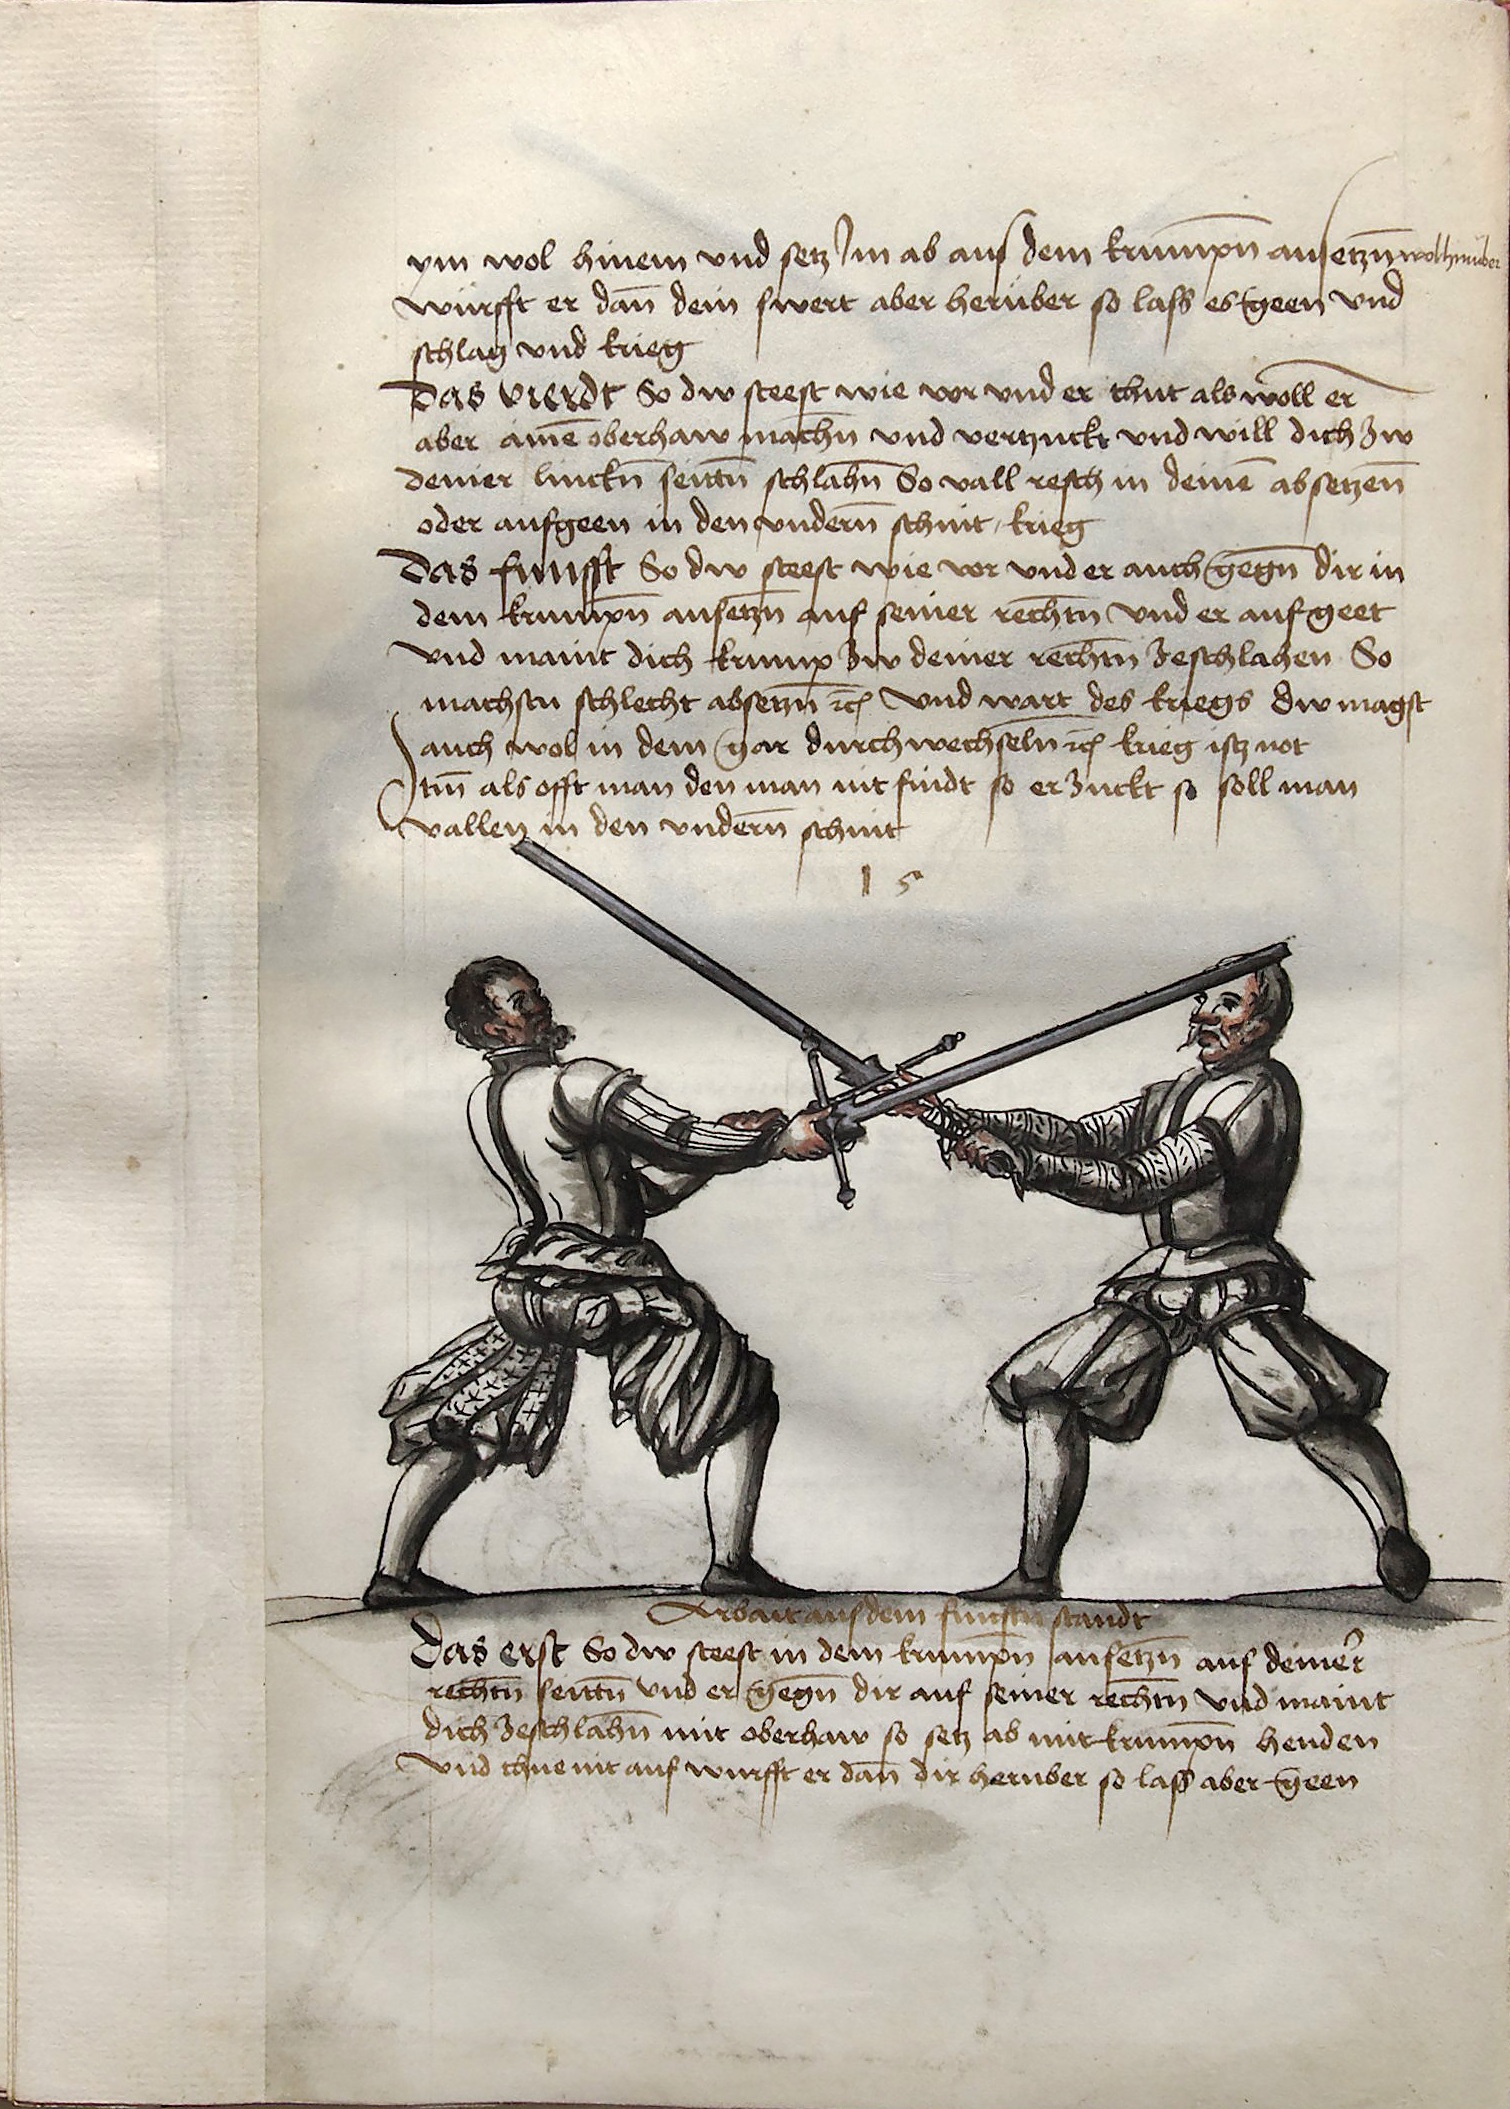 ym wol hinein und setz Im ab aus dem krumpn̄ ansetzn̄ wol hinüber
würfft er dan̄ dein swert aber herüber so lass es geen vnd
schlag vnd krieg
Das vierdt So dw steest wie vor vnd er thut als wöll er
aber ainē oberhaw machn̄ vnd vertzuckt vnd will dich zw
deiner linckn̄ seittn̄ schlahn̄ So vall resch in deinē absetzen̄
oder aufgeen in den vndern̄ schnit / krieg
Das funfft So dw steest wie vor vnd er auch gegn̄ dir in
dem krumpn̄ ansetzn̄ auf seiner rechtn̄ vnd er auf geet
vnd maint dich krump zw deiner rechtn̄ zeschlagen So
machstu schlecht absetzn̄ rc̄ Vnd wart des kriegs dw magst
auch wol in dem gar durchwechseln̄ rc̄ krieg istz not
Itm̄ als offt man den man nit findt so er zuckt so soll man
vallen in den vndern̄ schnit
15
Arbait aus dem funftn̄ standt
Das erst So dw steest in dem krumpn̄ ansetzn̄ auf deiner
rechtn̄ seittn̄ vnd er gegn̄ dir auf seiner rechtn̄ vnd maint
dich zeschlahn̄ mit oberhaw so setz ab mit krumpn̄ henden
vnd thue nit auf wurfft er dan̄ dir heruber so lass aber geen